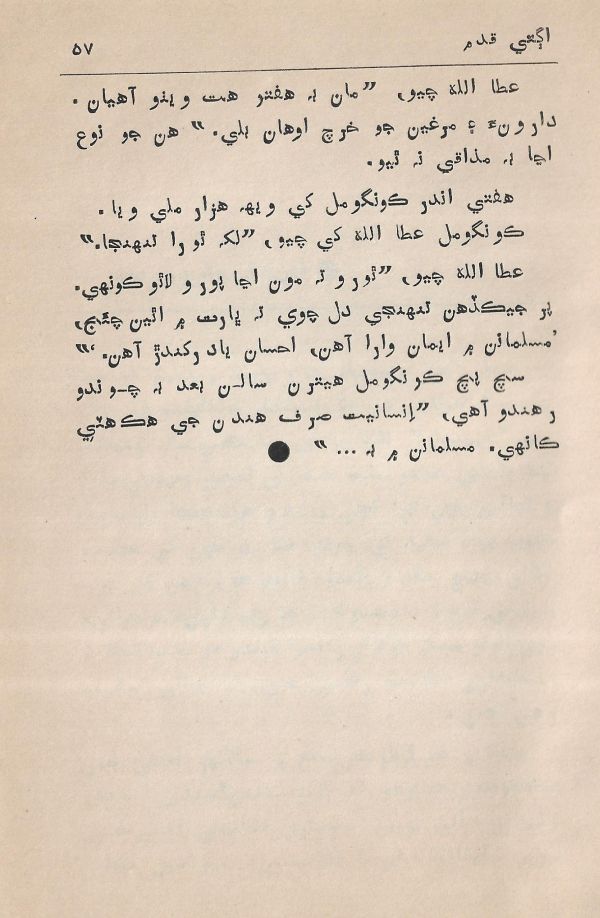 اڳتي قدم ٥٧
عطا اللہ چيو، ”مان بہ هفتو هت ويٺو آهيان.
دارونءَ ۽ مرغين جو خرچ اوهان بلي.“ هن جو نوع
اڃا بہ مذاقي نہ ٿيو.
هفتي اندر ڪونگومل کي ويهہ هزار ملي ويا.
ڪونگومل عطا اللہ کي چيو، ”لکہ ٿورا تنهنجا.“
عطا اللہ چيو، ”ٿورو تہ مون اڃا پورو لاٿو ڪونهي.
پر جيڪڏهن تنهنجي دل چوي تہ ڀارت ۾ ائين چئج،
’مسلمانن ۾ ايمان وارا آهن، احسان ياد رکندڙ آهن.‘“
سچ پچ ڪونگومل هيترن سالن بعد بہ چوندو
رهندو آهي، ”إنسانيت صرف هندن جي هڪهٽي
ڪانهي. مسلمانن ۾ بہ ...“